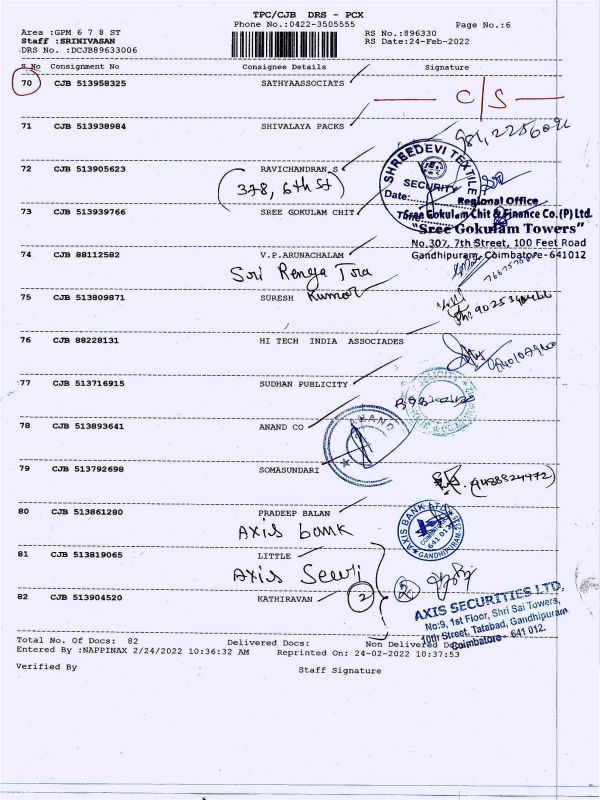 TPC/CJB DRS - PCX
Phone No.:0422-3505555
Page No.:6
Area :GPM 6 7 8 ST
RS No.:896330
Staff :SRINIVASAN
RS Date:24-Feb-2022
DRS No. :DCJB89633006
S No Consignment No Consignee Details Signature
70 CJB 513958325 SATHYAASSOCIATS
C/S
71 CJB 513938984 SHIVALAYA PACKS
72 CJB 513905623 RAVICHANDRAN S
(378, 6th St)
SHREEDEVI TEXTILE
SECURITY
Date:
Time:
73 CJB 513939766 SREE GOKULAM CHIT
Regional Office
Sree Gokulam Chit & Finance Co.(P) Ltd.
"Sree Gokulam Towers"
No.307, 7th Street, 100 Feet Road
Gandhipuram, Coimbatore-641012
74 CJB 88112582 V.P.ARUNACHALAM
Sri Renga
75 CJB 513809871 SURESH Kumar
76 CJB 88228131 HI TECH INDIA ASSOCIADES
77 CJB 513716915 SUDHAN PUBLICITY
78 CJB 513893641 ANAND CO
79 CJB 513792698 SOMASUNDARI
80 CJB 513861280 PRADEEP BALAN
Axis bank
AXIS BANK
GANDHIPURAM
81 CJB 513819065 LITTLE
Axis
82 CJB 513904520 KATHIRAVAN 2
AXIS SECURITIES LTD.
No:9, 1st Floor, Shri Sai Towers,
10th Street, Tatabad, Gandhipuram,
Coimbatore - 641 012.
Total No. Of Docs: 82 Delivered Docs: Non Delivered Docs
Entered By :NAPPINAX 2/24/2022 10:36:32 AM Reprinted On: 24-02-2022 10:37:53
Verified By Staff Signature